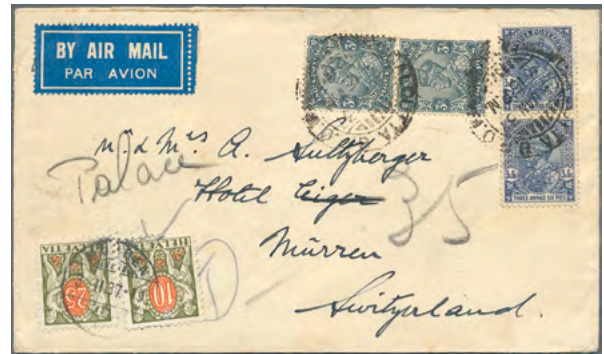 BY AIR MAIL
PAR AVION
INDIA POSTAGE
THREE ANNAS SIX PIES
Mr & Mrs A. Sultzberger
Palace
Hotel Eiger
35
Mürren
Switzerland.
HELVETIA
25
HELVETIA
10